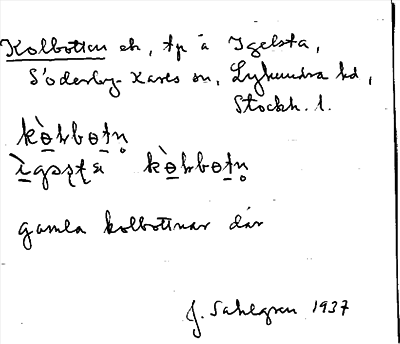 Kolbotten ek, tp å Igelsta,
Söderby-Karls sn, Lyhundra hd,
Stockh. l.
kòlbotn̥
ìgəsta kòlbotn̥
gamla kolbottnar där
J. Sahlgren 1937